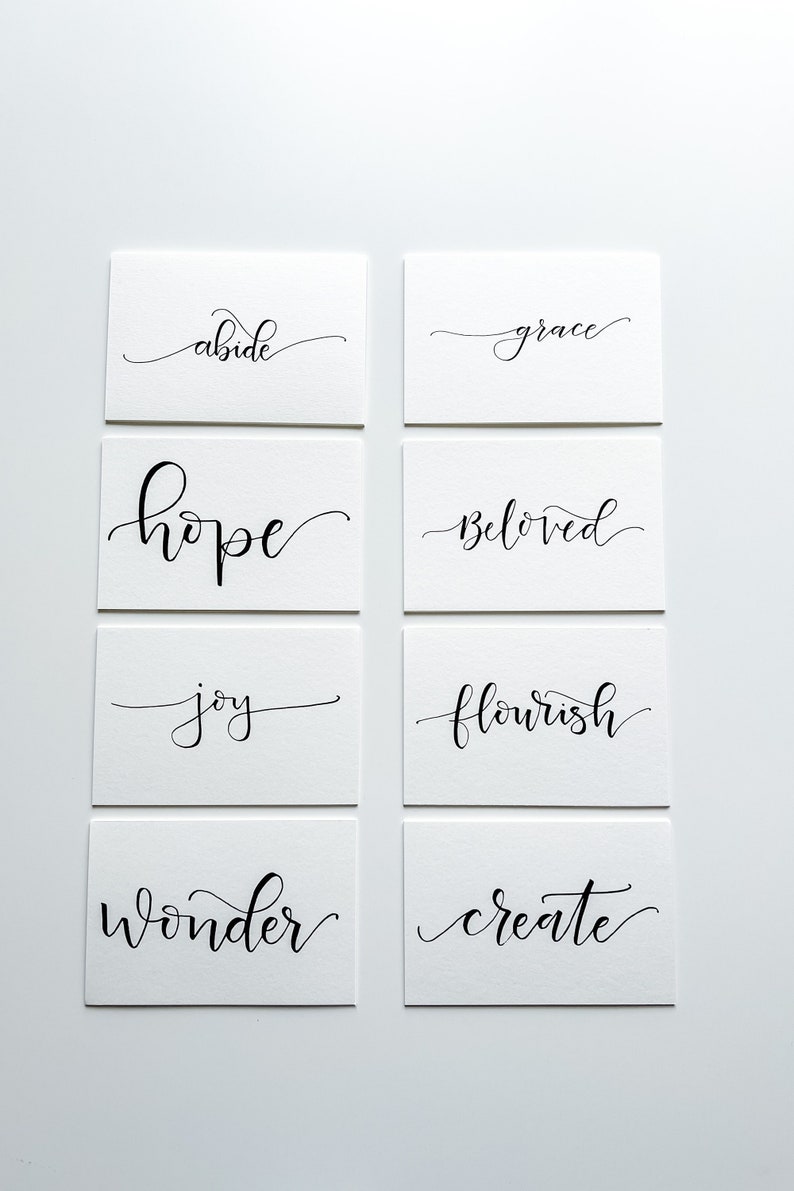 abide
grace
hope
Beloved
joy
flourish
wonder
create